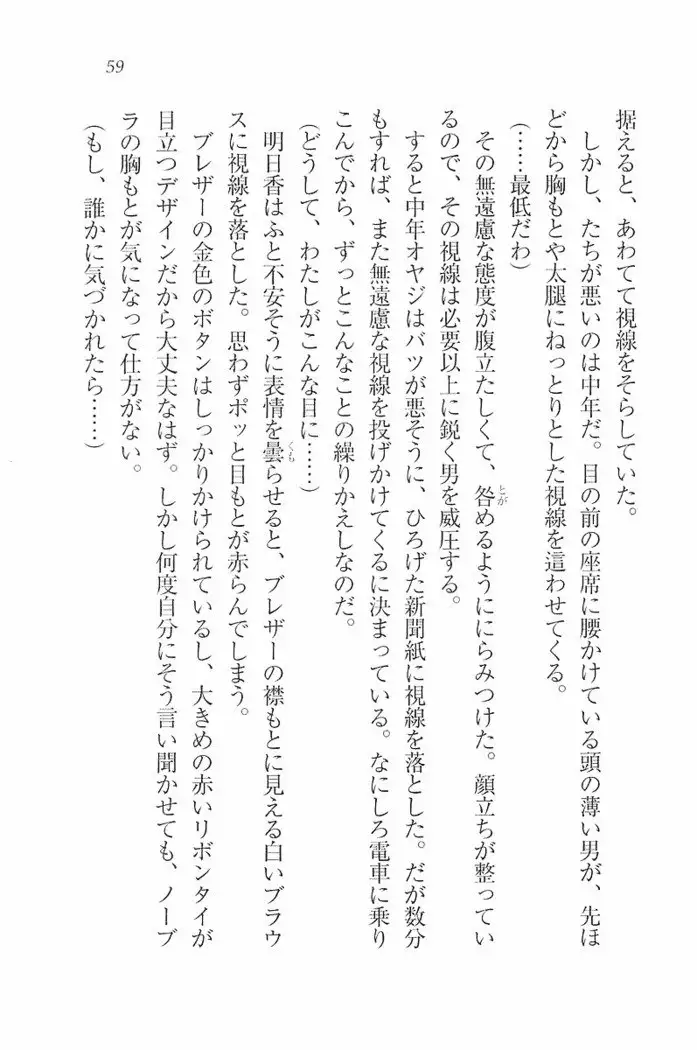 59
据えると、あわてて視線をそらしていた。
しかし、たちが悪いのは中年だ。目の前の座席に腰かけている頭の薄い男が、先ほ
どから胸もとや太腿にねっとりとした視線を這わせてくる。
(……最低だわ)
その無遠慮な態度が腹立たしくて、咎めるようににらみつけた。顔立ちが整ってい
るので、その視線は必要以上に鋭く男を威圧する。
すると中年オヤジはバツが悪そうに、ひろげた新聞紙に視線を落とした。だが数分
もすれば、また無遠慮な視線を投げかけてくるに決まっている。なにしろ電車に乗り
こんでから、ずっとこんなことの繰りかえしなのだ。
(どうして、わたしがこんな目に……)
明日香はふと不安そうに表情を曇らせると、ブレザーの襟もとに見える白いブラウ
スに視線を落とした。思わずポッと目もとが赤らんでしまう。
ブレザーの金色のボタンはしっかりかけられているし、大きめの赤いリボンタイが
目立つデザインだから大丈夫なはず。しかし何度自分にそう言い聞かせても、ノーブ
ラの胸もとが気になって仕方がない。
(もし、誰かに気づかれたら……)